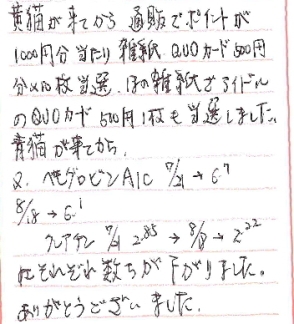 黄猫が来てから 通販でポイントが
1000円分当たり 雑誌 QUOカード500円
分×10枚当選、ほの雑誌でアイドル
のQUOカード 500円1枚も当選しました。
青猫が来てから、
2. ヘモグロビンA1C 7/21→6.7
8/18→6.1
クレアチン 7/21 2.85→8/18→2.22
にそれぞれ数ちが下がりました。
ありがとうございました。